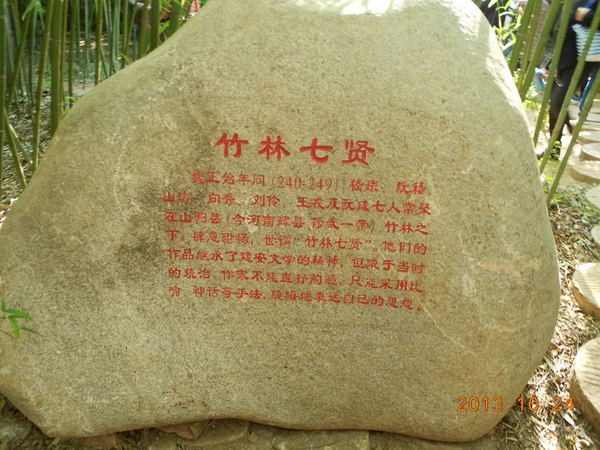 竹林七贤
魏正始年间(240-249),嵇康、阮籍
山涛、向秀、刘伶、王戎及阮咸七人常聚
在山阳县(今河南辉县、修武一带)竹林之
下,肆意酣畅,世谓"竹林七贤"。他们的
作品继承了建安文学的精神,但限于当时
的统治,作家不能直抒胸臆,只能采用比
喻 神话等手法,隐晦地表达自己的思想。
2013 10 24